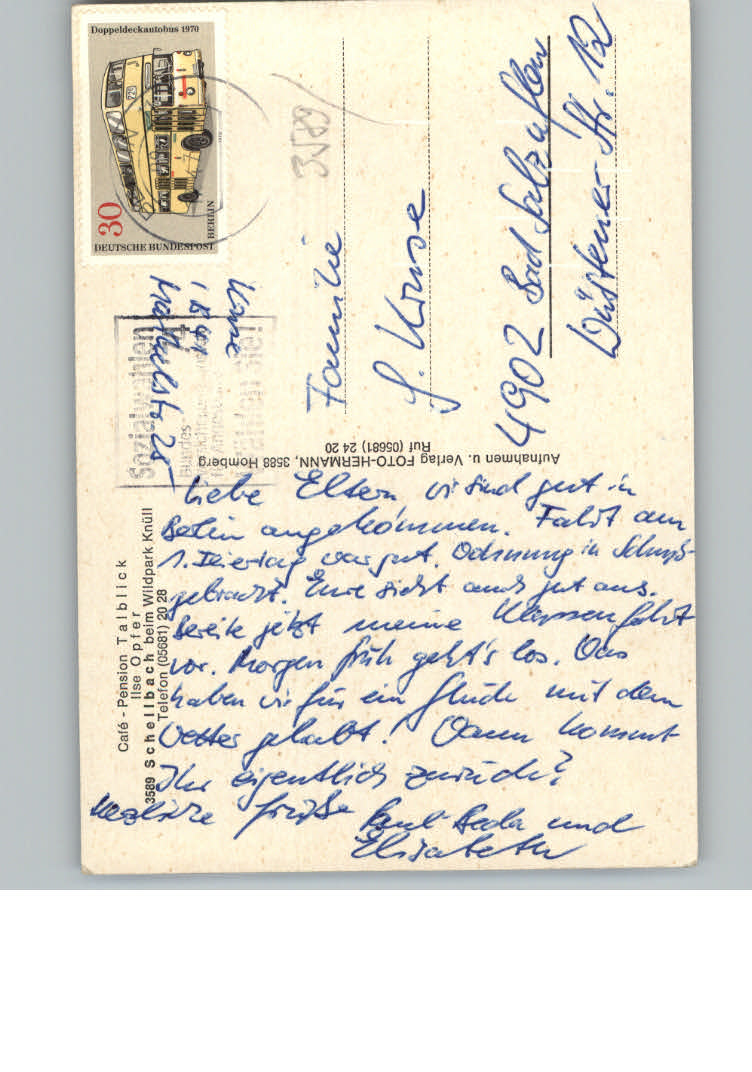 Doppeldeckautobus 1970
30
BERLIN
DEUTSCHE BUNDESPOST
Sozialwahlen
Bundes-
Kruse
1 B 41
25
Familie
G. Kruse
4902 Bad Salzuflen
Wüstener Str. 12
Aufnahmen u. Verlag FOTO-HERMANN, 3588 Homberg
Ruf (05681) 24 20
Café - Pension Talblick
Ilse Opfer
3589 Schellbach beim Wildpark Knüll
Telefon (05681) 20 28
Liebe Eltern wir sind gut in
Berlin angekommen. Fahrt am
1. Feiertag war gut. Ordnung in
gebracht. Eure sieht auch gut aus.
Bereite jetzt meine Klassenfahrt
vor. Morgen früh geht's los. Was
haben wir für ein Glück mit dem
Wetter gehabt! Wann kommt
Ihr eigentlich zurück?
Herzliche Grüße
und
Elisabeth